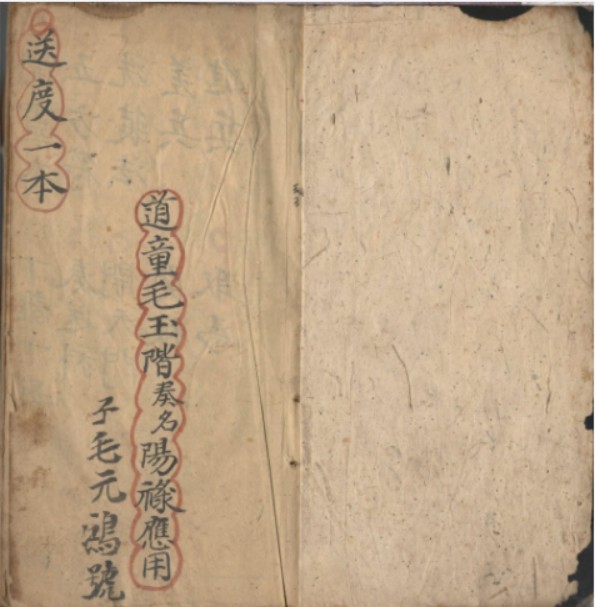 道童毛玉階奏名陽祿應用
子毛元鴻號
送度一本